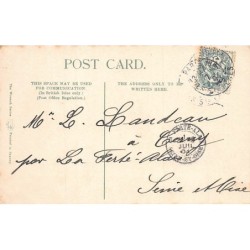 POST CARD.
THIS SPACE MAY BE USED
FOR COMMUNICATION
(In British Isles only.)
(Post Office Regulation.)
THE ADDRESS ONLY TO BE
WRITTEN HERE.
Mr L. Landeau
à
par La Ferté-Alais
Seine et Oise